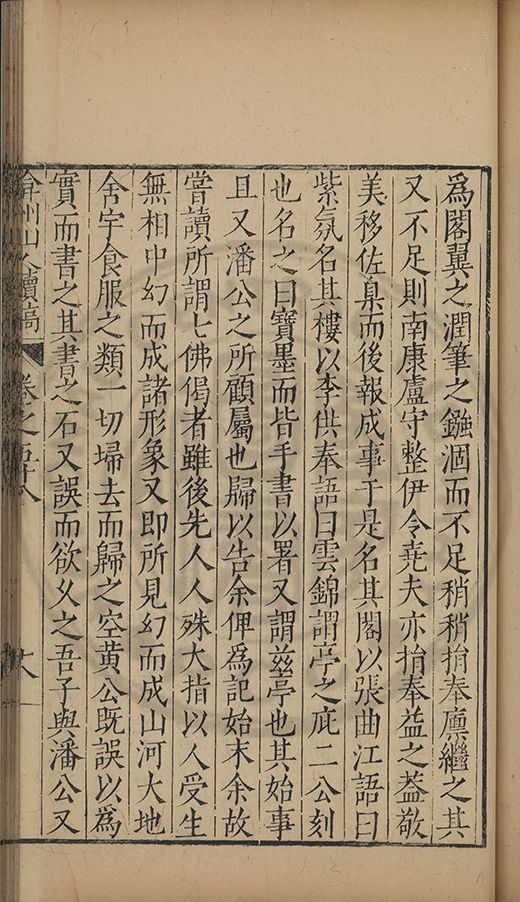 為閣翼之潤筆之鏹涸而不足稍稍捐奉廩繼之其
又不足則南康盧守整伊令堯夫亦捐奉益之葢敬
美移佐臬而後報成事于是名其閣以張曲江語曰
紫氛名其樓以李供奉語曰雲錦謂亭之庇二公刻
也名之曰寶墨而皆手書以署又謂茲亭也其始事
且又潘公之所顧屬也歸以告余俾為記始末余故
嘗讀所謂七佛偈者雖後先人人殊大指以人受生
無相中幻而成諸形象又即所見幻而成山河大地
舍宇食服之類一切埽去而歸之空黄公既誤以為
實而書之其書之石又誤而欲乆之吾子與潘公又
弇州山人續稿 卷之五十八 大